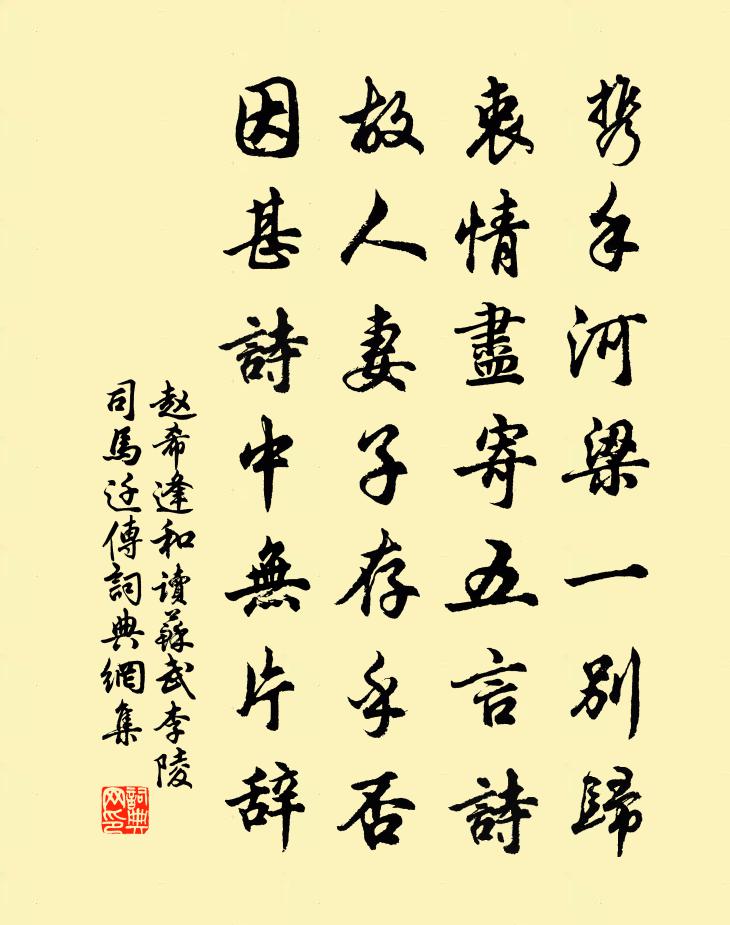 携手河梁一别歸
衷情盡寄五言詩
故人妻子存乎否
因甚詩中無片辞
赵希逢和读蘇武李陵
司馬迁傳詞典網集
詞典网印